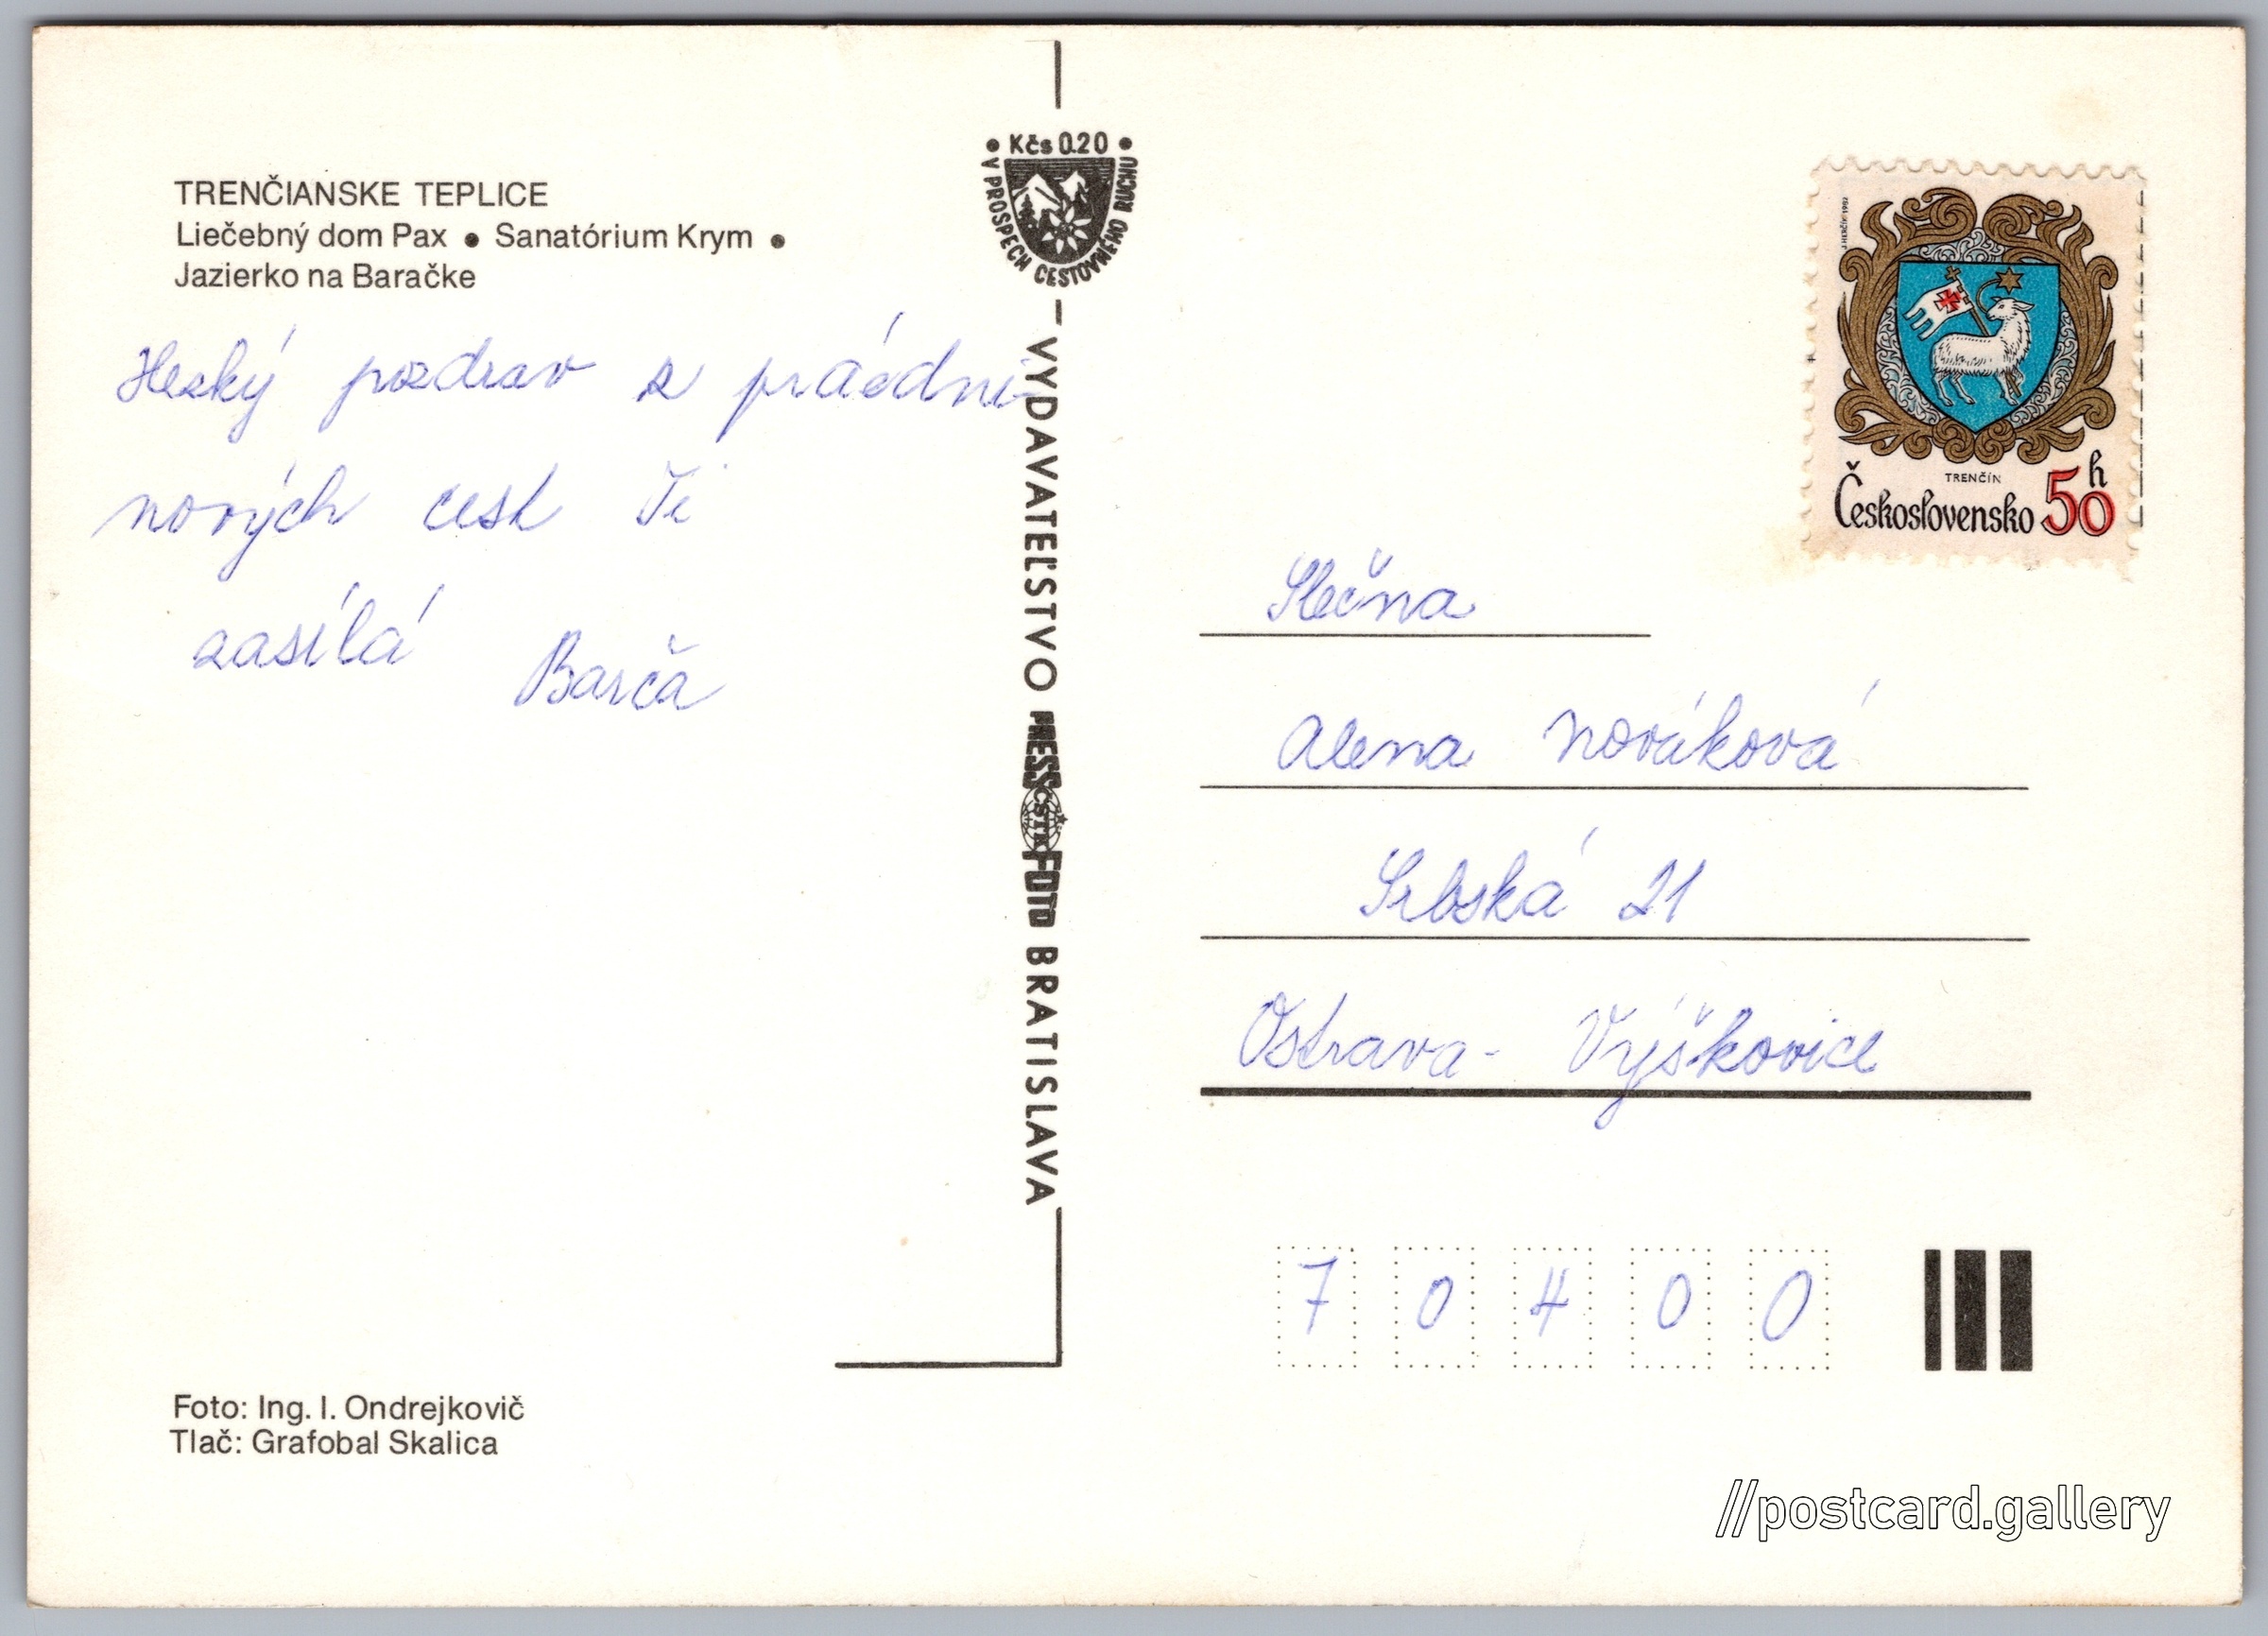 TRENČIANSKE TEPLICE
Liečebný dom Pax • Sanatórium Krym •
Jazierko na Baračke
Hezký pozdrav z prázdni-
nových cest Ti
zasílá Barča
Foto: Ing. I. Ondrejkovič
Tlač: Grafobal Skalica
• Kčs 0.20 •
V PROSPECH CESTOVNÉHO RUCHU
VYDAVATEĽSTVO PRESSFOTO BRATISLAVA
ČSTK
J. HERČÍK 1982
TRENČÍN
Československo 50 h
Slečna
Alena Nováková
Srbská 21
Ostrava - Výškovice
7 0 4 0 0
//postcard.gallery